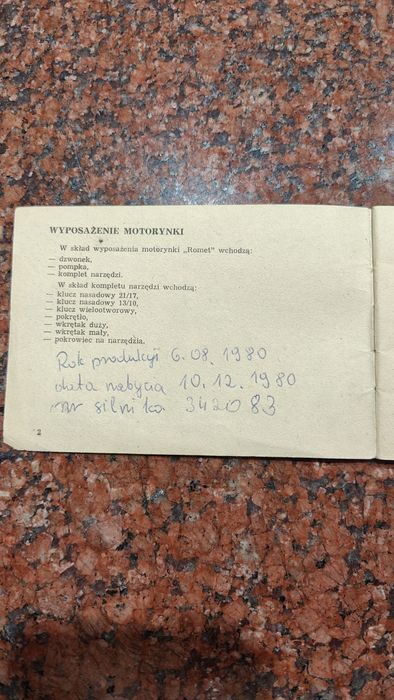 WYPOSAŻENIE MOTORYNKI
W skład wyposażenia motorynki „Romet" wchodzą:
— dzwonek,
— pompka,
— komplet narzędzi.
W skład kompletu narzędzi wchodzą:
— klucz nasadowy 21/17,
— klucz nasadowy 13/10,
— klucz wielootworowy,
— pokrętło,
— wkrętak duży,
— wkrętak mały,
— pokrowiec na narzędzia.
Rok produkcji 6.08.1980
data nabycia 10.12.1980
nr silnika 342083
2